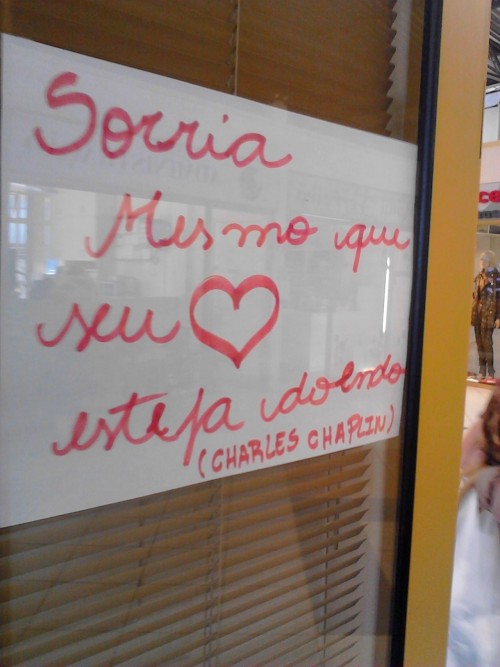 Sorria
Mesmo que
seu ♡
esteja doendo
(CHARLES CHAPLIN)